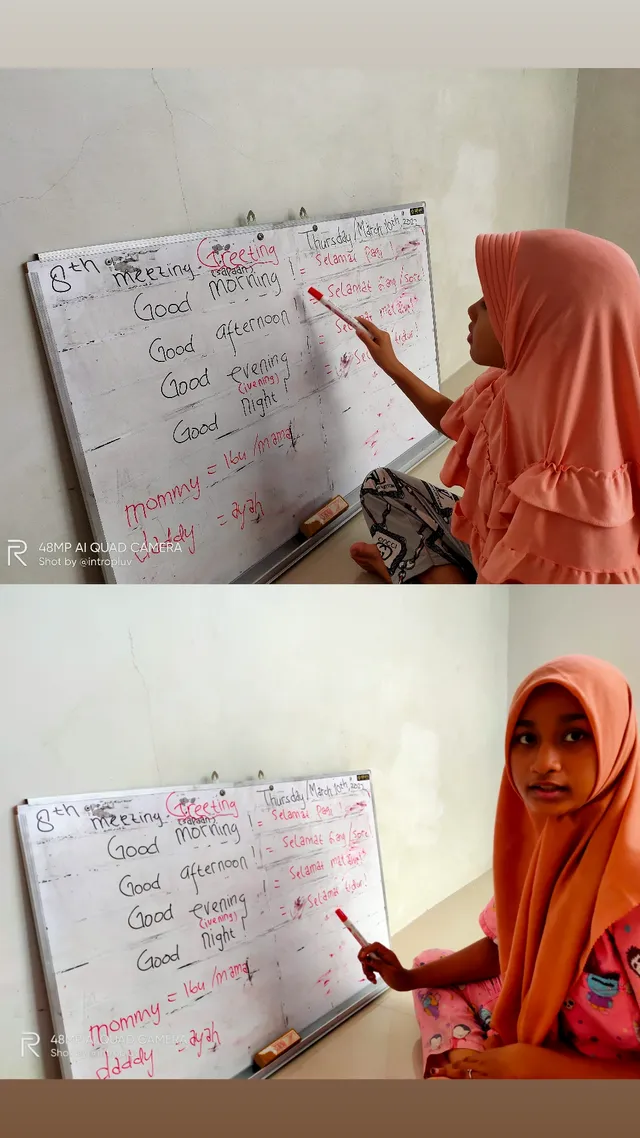 8th meeting. Greeting Thursday/March 10th 2022
(sapaan)
Good morning ! = Selamat Pagi !
Good afternoon ! Selamat siang/sore!
Good evening ! = Selamat malam
(ivening)
Good night ! = tidur!
mommy = Ibu/mama
daddy = ayah
GUCCI
R 48MP AI QUAD CAMERA
Shot by @intropluv
8th meeting. Greeting Thursday/March 10th 2022
(sapaan)
Good morning ! = Selamat Pagi !
Good afternoon ! = Selamat siang/sore
Good evening ! = Selamat malam
(ivening)
Good night ! = Selamat tidur!
mommy = Ibu/mama
daddy = ayah
R 48MP AI QUAD CAMERA
Shot